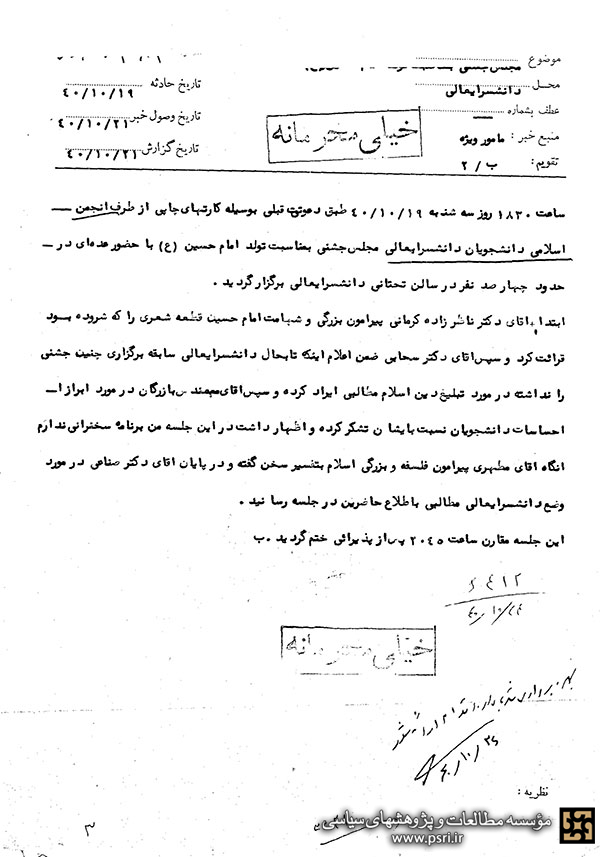 موضوع
مجلس جشنی
محل
دانشسرایعالی
عطف بشماره
منبع خبر : مامور ویژه
تقویم : ب / ۲
تاریخ حادثه ۴۰/۱۰/۱۹
تاریخ وصول خبر ۴۰/۱۰/۲۱
تاریخ گزارش ۴۰/۱۰/۲۱
خیلی محرمانه
ساعت ۱۸۳۰ روز سه شنبه ۴۰/۱۰/۱۹ طبق دعوت قبلی بوسیله کارتهای چاپی از طرف انجمن ـ
اسلامی دانشجویان دانشسرایعالی مجلس جشنی بمناسبت تولد امام حسین (ع) با حضور عده‌ای در ـ
حدود چهار صد نفر در سالن تحتانی دانشسرایعالی برگزار گردید .
ابتدا آقای دکتر ناظر زاده کرمانی پیرامون بزرگی و شهامت امام حسین قطعه شعری را که سروده بود
قرائت کرد و سپس آقای دکتر سحابی ضمن اعلام اینکه تابحال دانشسرایعالی سابقه برگزاری چنین جشنی
را نداشته در مورد تبلیغ دین اسلام مطالبی ایراد کرده و سپس آقای مهندس بازرگان در مورد ابراز ا ـ
احساسات دانشجویان نسبت بایشان تشکر کرده و اظهار داشت در این جلسه من برنامه سخنرانی ندارم
انگاه آقای مطهری پیرامون فلسفه و بزرگی اسلام بتفسیر سخن گفته و در پایان آقای دکتر صناعی در مورد
وضع دانشسرایعالی مطالبی باطلاع حاضرین در جلسه رسانید .
این جلسه مقارن ساعت ۲۰۴۵ پس از پذیرائی ختم گردید . ب
خیلی محرمانه
نظریه :
۳
مؤسسه مطالعات و پژوهشهای سیاسی
www.psri.ir